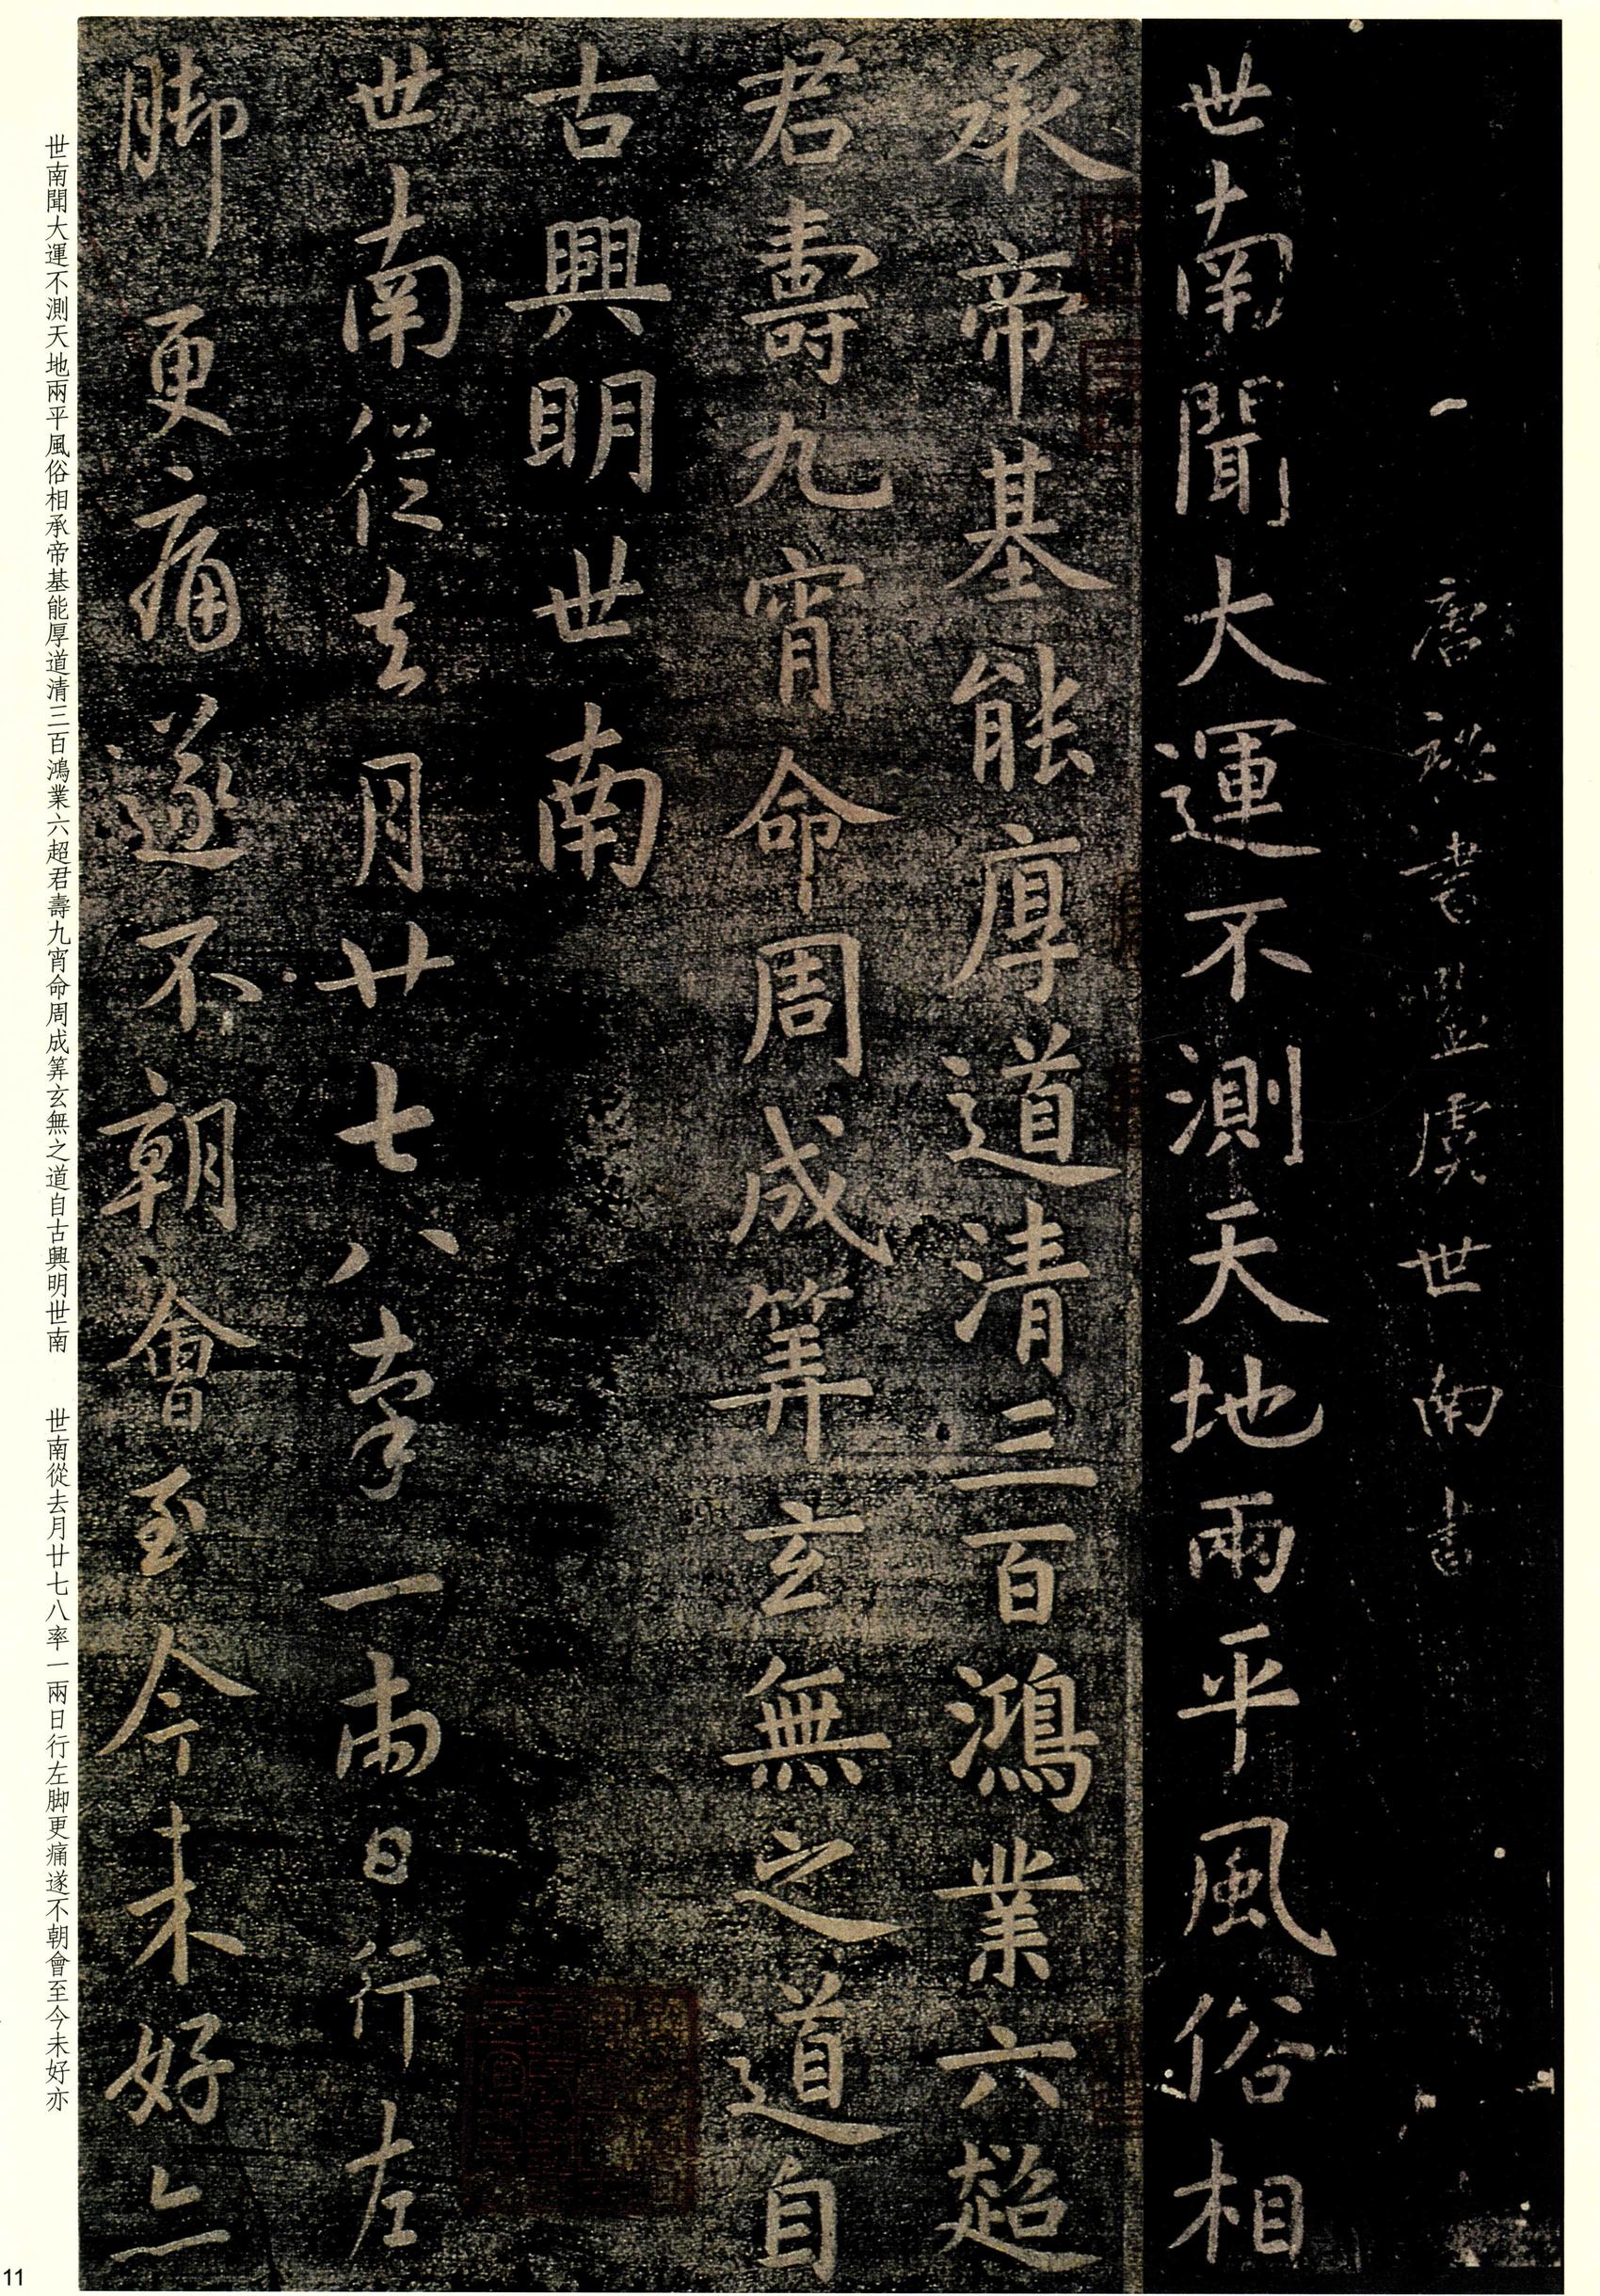 唐秘書監虞世南書
世南聞大運不測天地兩平風俗相
承帝基能厚道清三百鴻業六超
君壽九宵命周成筭玄無之道自
古興明世南
世南從去月廿七八率一兩日行左
脚更痛遂不朝會至今未好亦
世南聞大運不測天地兩平風俗相承帝基能厚道清三百鴻業六超君壽九宵命周成筭玄無之道自古興明世南　世南從去月廿七八率一兩日行左脚更痛遂不朝會至今未好亦
11